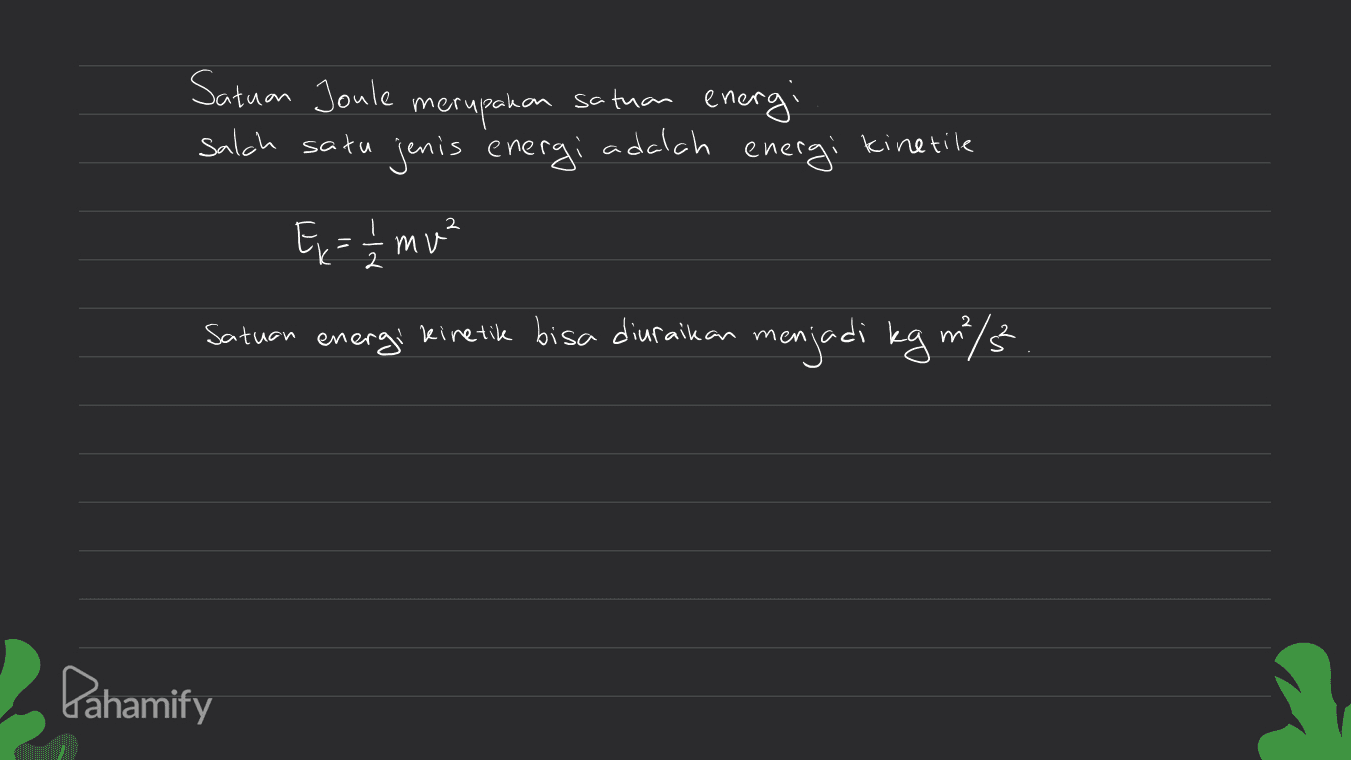 Satuan Joule merupakan satuan energi
salah satu jenis energi adalah energi kinetik
Ek = 1/2 mv²
Satuan energi kinetik bisa diuraikan menjadi kg m²/s².
Pahamify